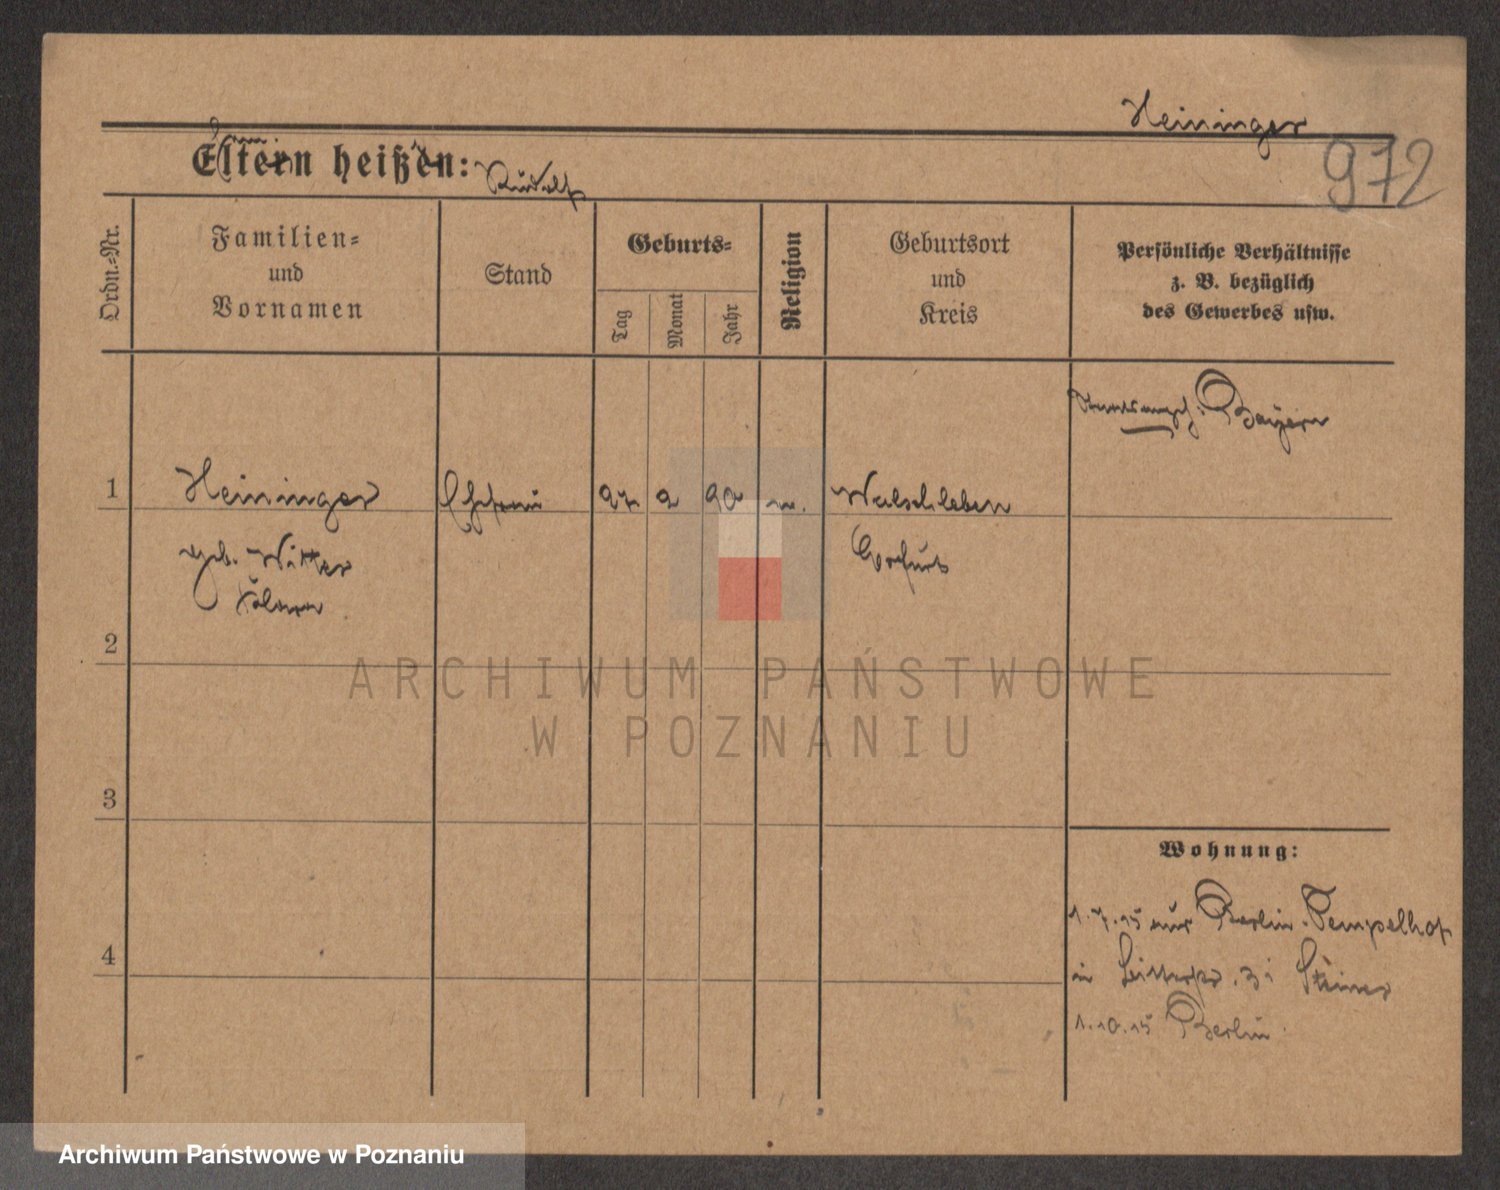 Heininger
972
Eltern heißen: Rudolf
Ordn.-Nr.
Familien-
und
Vornamen
Stand
Geburts-
Tag
Monat
Jahr
Religion
Geburtsort
und
Kreis
Persönliche Verhältnisse
z. B. bezüglich
des Gewerbes usw.
Staatsangeh: Bayern
1 Heininger Ehefrau 27 2 90 Walschleben
geb. Witter
Klara
Erfurt
2
3
4
Wohnung:
1.7.15 aus Berlin-Tempelhof
in 3 Steiner
1.10.15 Berlin
ARCHIWUM PAŃSTWOWE
W POZNANIU
Archiwum Państwowe w Poznaniu